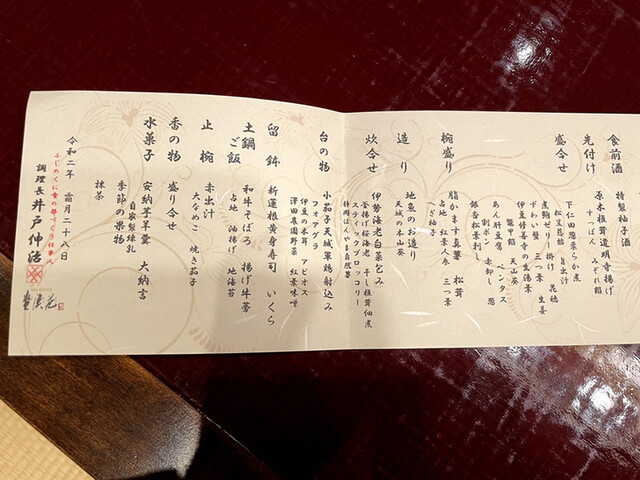 食前酒　特製柚子酒
先付け　原木椎茸道明寺揚げ
すっぽん　みぞれ餡
盛合せ　下仁田葱柔らか煮
松葉昆布　旨出汁
煮鮑ゼリー掛け　昆穂
ずわい蟹　三つ葉　生姜
伊豆修善寺の生湯葉
鼈甲餡　天山葵
あん肝豆腐　ペンタス
割ポン　赤卸し　葱
銀杏松葉刺し
椀盛り　脂かます真薯　松茸
占地　紅葉人参　三つ葉
へぎ柚子
造り　地魚のお造り
天城の本山葵
炊合せ　伊勢海老白菜包み
釜揚げ桜海老　干し椎茸佃煮
スティックブロッコリー
静岡ぱんやま自然薯
台の物　小茄子天城軍鶏射込み
フォアグラ
伊豆の木耳　アピオス
澤田農園野菜　紅葉味噌
留鉢　新蓮根黄身寿司　いくら
土鍋ご飯　和牛そぼろ　揚げ牛蒡
占地　油揚げ　地海苔
止椀　赤出汁
大なめこ　焼き茄子
香の物　盛り合せ
水菓子　安納芋羊羹　大納言
自家製練乳
季節の果物
抹茶
令和二年　霜月二十八日
ふじのくに食の都づくり仕事人
調理長 井戸伸治